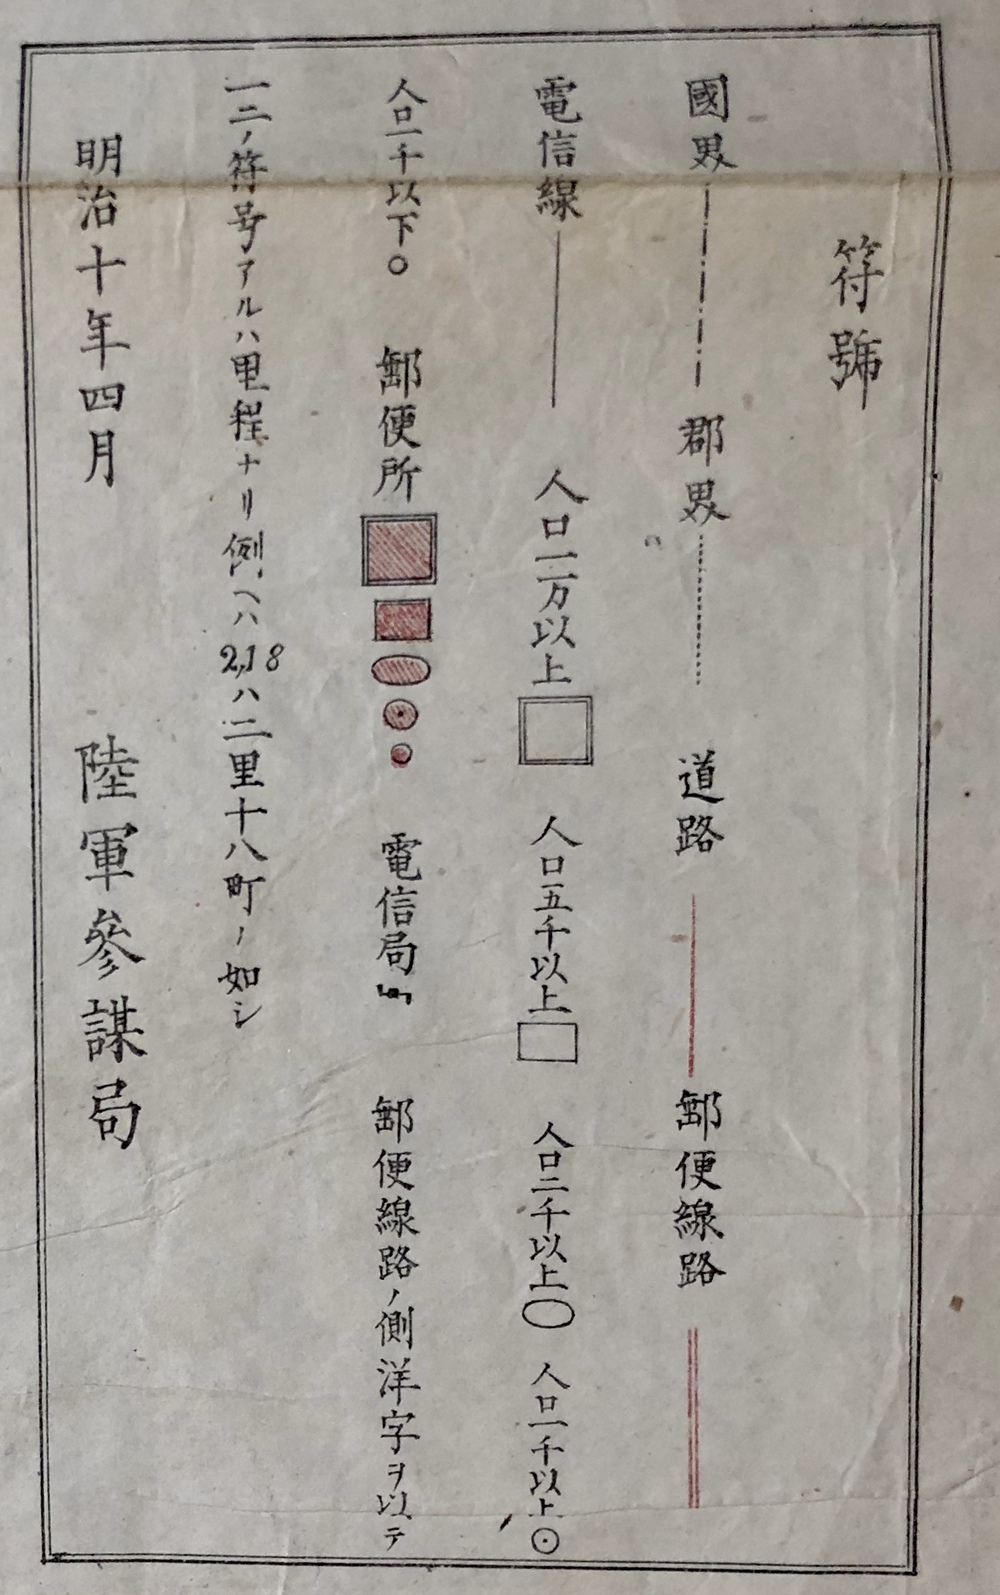 符號
國界 郡界 道路 郵便線路
電信線 人口二万以上 人口五千以上 人口二千以上 人口一千以上
人口一千以下 郵便所 電信局 郵便線路ノ側洋字ヲ以テ
一二ノ符号アルハ里程ナリ例ヘハ2,18ハ二里十八町ノ如シ
明治十年四月 陸軍參謀局